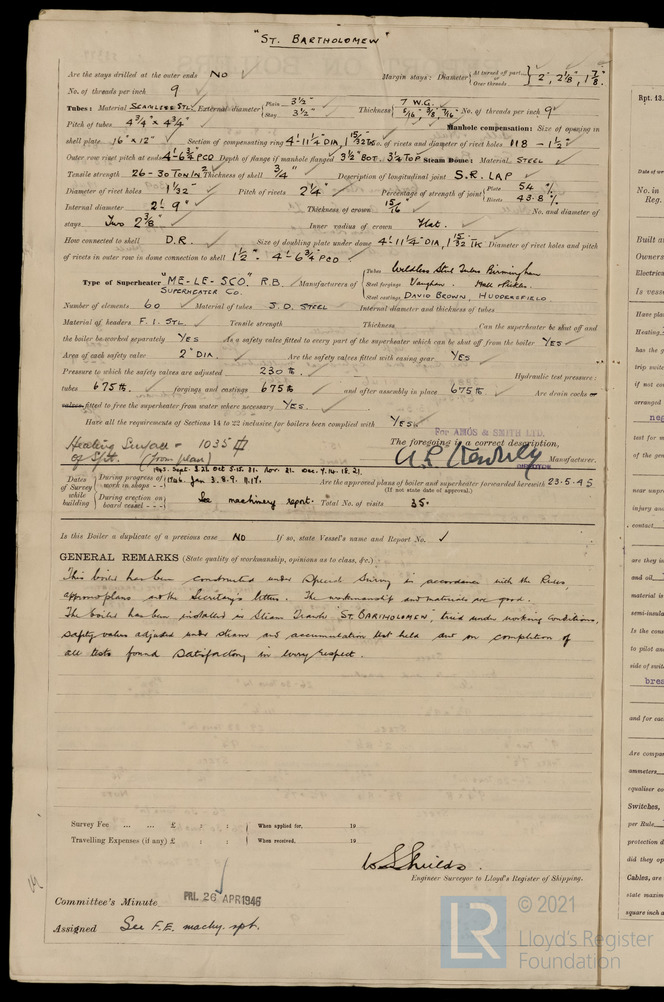 "ST. BARTHOLOMEW"
Are the stays drilled at the outer ends NO Margin stays: Diameter { At turned off part, or Over threads } 2", 2 1/8", 1 7/8".
No. of threads per inch 9
Tubes: Material SEAMLESS STL. External diameter { Plain 3 1/2" Stay 3 1/2" Thickness { 7 W.G. 5/16", 3/8", 7/16" No. of threads per inch 9
Pitch of tubes 4 3/4" x 4 3/4" Manhole compensation: Size of opening in
shell plate 16" x 12" Section of compensating ring 4'-11 1/4" DIA, 1 15/32" TK No. of rivets and diameter of rivet holes 118 - 1 1/2"
Outer row rivet pitch at ends 4'-6 3/4" PCD Depth of flange if manhole flanged 3 1/2" BOT. 3 1/4" TOP Steam Dome: Material STEEL
Tensile strength 26-30 TON IN² Thickness of shell 3/4" Description of longitudinal joint S.R. LAP
Diameter of rivet holes 1 1/32" Pitch of rivets 2 1/4" Percentage of strength of joint { Plate 54 % Rivets 43.8 %
Internal diameter 2'-9" Thickness of crown 15/16" No. and diameter of
stays Two 2 3/8" Inner radius of crown Flat.
How connected to shell D.R. Size of doubling plate under dome 4'-11 1/4" DIA, 1 15/32 TK Diameter of rivet holes and pitch
of rivets in outer row in dome connection to shell 1 1/2" - 4'-6 3/4" PCD
Type of Superheater "ME-LE-SCO" R.B. SUPERHEATER Co. Manufacturers of { Tubes Weldless Steel Tubes Birmingham
Steel forgings Vaughan
Steel castings DAVID BROWN, HUDDERSFIELD
Number of elements 60 Material of tubes S.D. STEEL Internal diameter and thickness of tubes
Material of headers F.I. STL Tensile strength Thickness Can the superheater be shut off and
the boiler be worked separately YES Is a safety valve fitted to every part of the superheater which can be shut off from the boiler YES
Area of each safety valve 2" DIA. Are the safety valves fitted with easing gear YES
Pressure to which the safety valves are adjusted 230 lb. Hydraulic test pressure:
tubes 675 lb. forgings and castings 675 lb and after assembly in place 675 lb Are drain cocks or
valves fitted to free the superheater from water where necessary YES.
Have all the requirements of Sections 14 to 22 inclusive for boilers been complied with YES
For AMOS & SMITH LTD.
Heating Surface - 1035 ft² The foregoing is a correct description,
of S/pht. (from plan) Manufacturer.
DIRECTOR
Dates of Survey while building { During progress of work in shops - - 1945. Sept. Oct Nov. 21. Dec. 1946. Jan 3. 8. 9. 11. 17. Are the approved plans of boiler and superheater forwarded herewith 23.5.45
(If not state date of approval.)
During erection on board vessel - - See machinery report. Total No. of visits 35.
Is this Boiler a duplicate of a previous case NO If so, state Vessel's name and Report No.
GENERAL REMARKS (State quality of workmanship, opinions as to class, &c.)
This boiler has been constructed under Special Survey in accordance with the Rules,
approved plans and the Secretary's letters. The workmanship and materials are good.
The boiler has been installed in Steam Trawler "ST. BARTHOLOMEW", tried under working conditions,
safety valves adjusted under steam and accumulation test held and on completion of
all tests found satisfactory in every respect.
Survey Fee ... ... £ : : When applied for, 19
Travelling Expenses (if any) £ : : When received, 19
Engineer Surveyor to Lloyd's Register of Shipping.
Committee's Minute FRI. 26 APR 1946
Assigned See F.E. machy. rpt.
Rpt. 13.
No. in
Reg.
Built at
Owners
Electrical
Is vessel
© 2021
Lloyd's Register
Foundation
LR